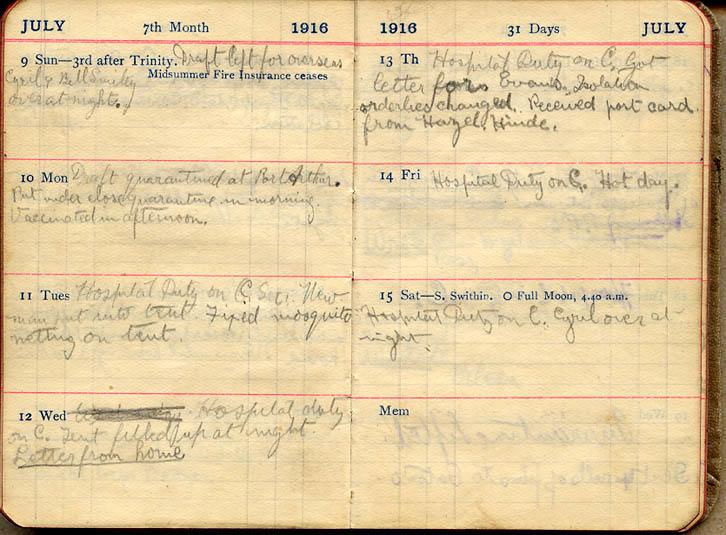 JULY 7th Month 1916
9 Sun—3rd after Trinity. Draft left for overseas
Midsummer Fire Insurance ceases
Cyril & Bell
over at night.
10 Mon Draft quarantined at Port Arthur.
Put under close quarantine in morning.
Vaccinated in afternoon.
11 Tues Hospital Duty on C. New
man put into tent. Fixed mosquito
netting on tent.
12 Wed Hospital duty
on C. Tent filled up at night.
Letter from home
1916 31 Days JULY
13 Th Hospital Duty on C. Got
letter Evans. Isolation
orderlies changed. Received post card
from Hazel Hinde.
14 Fri Hospital Duty on C. Hot day.
15 Sat—S. Swithin. O Full Moon, 4.40 a.m.
Hospital Duty on C. Cyril over at
night.
Mem